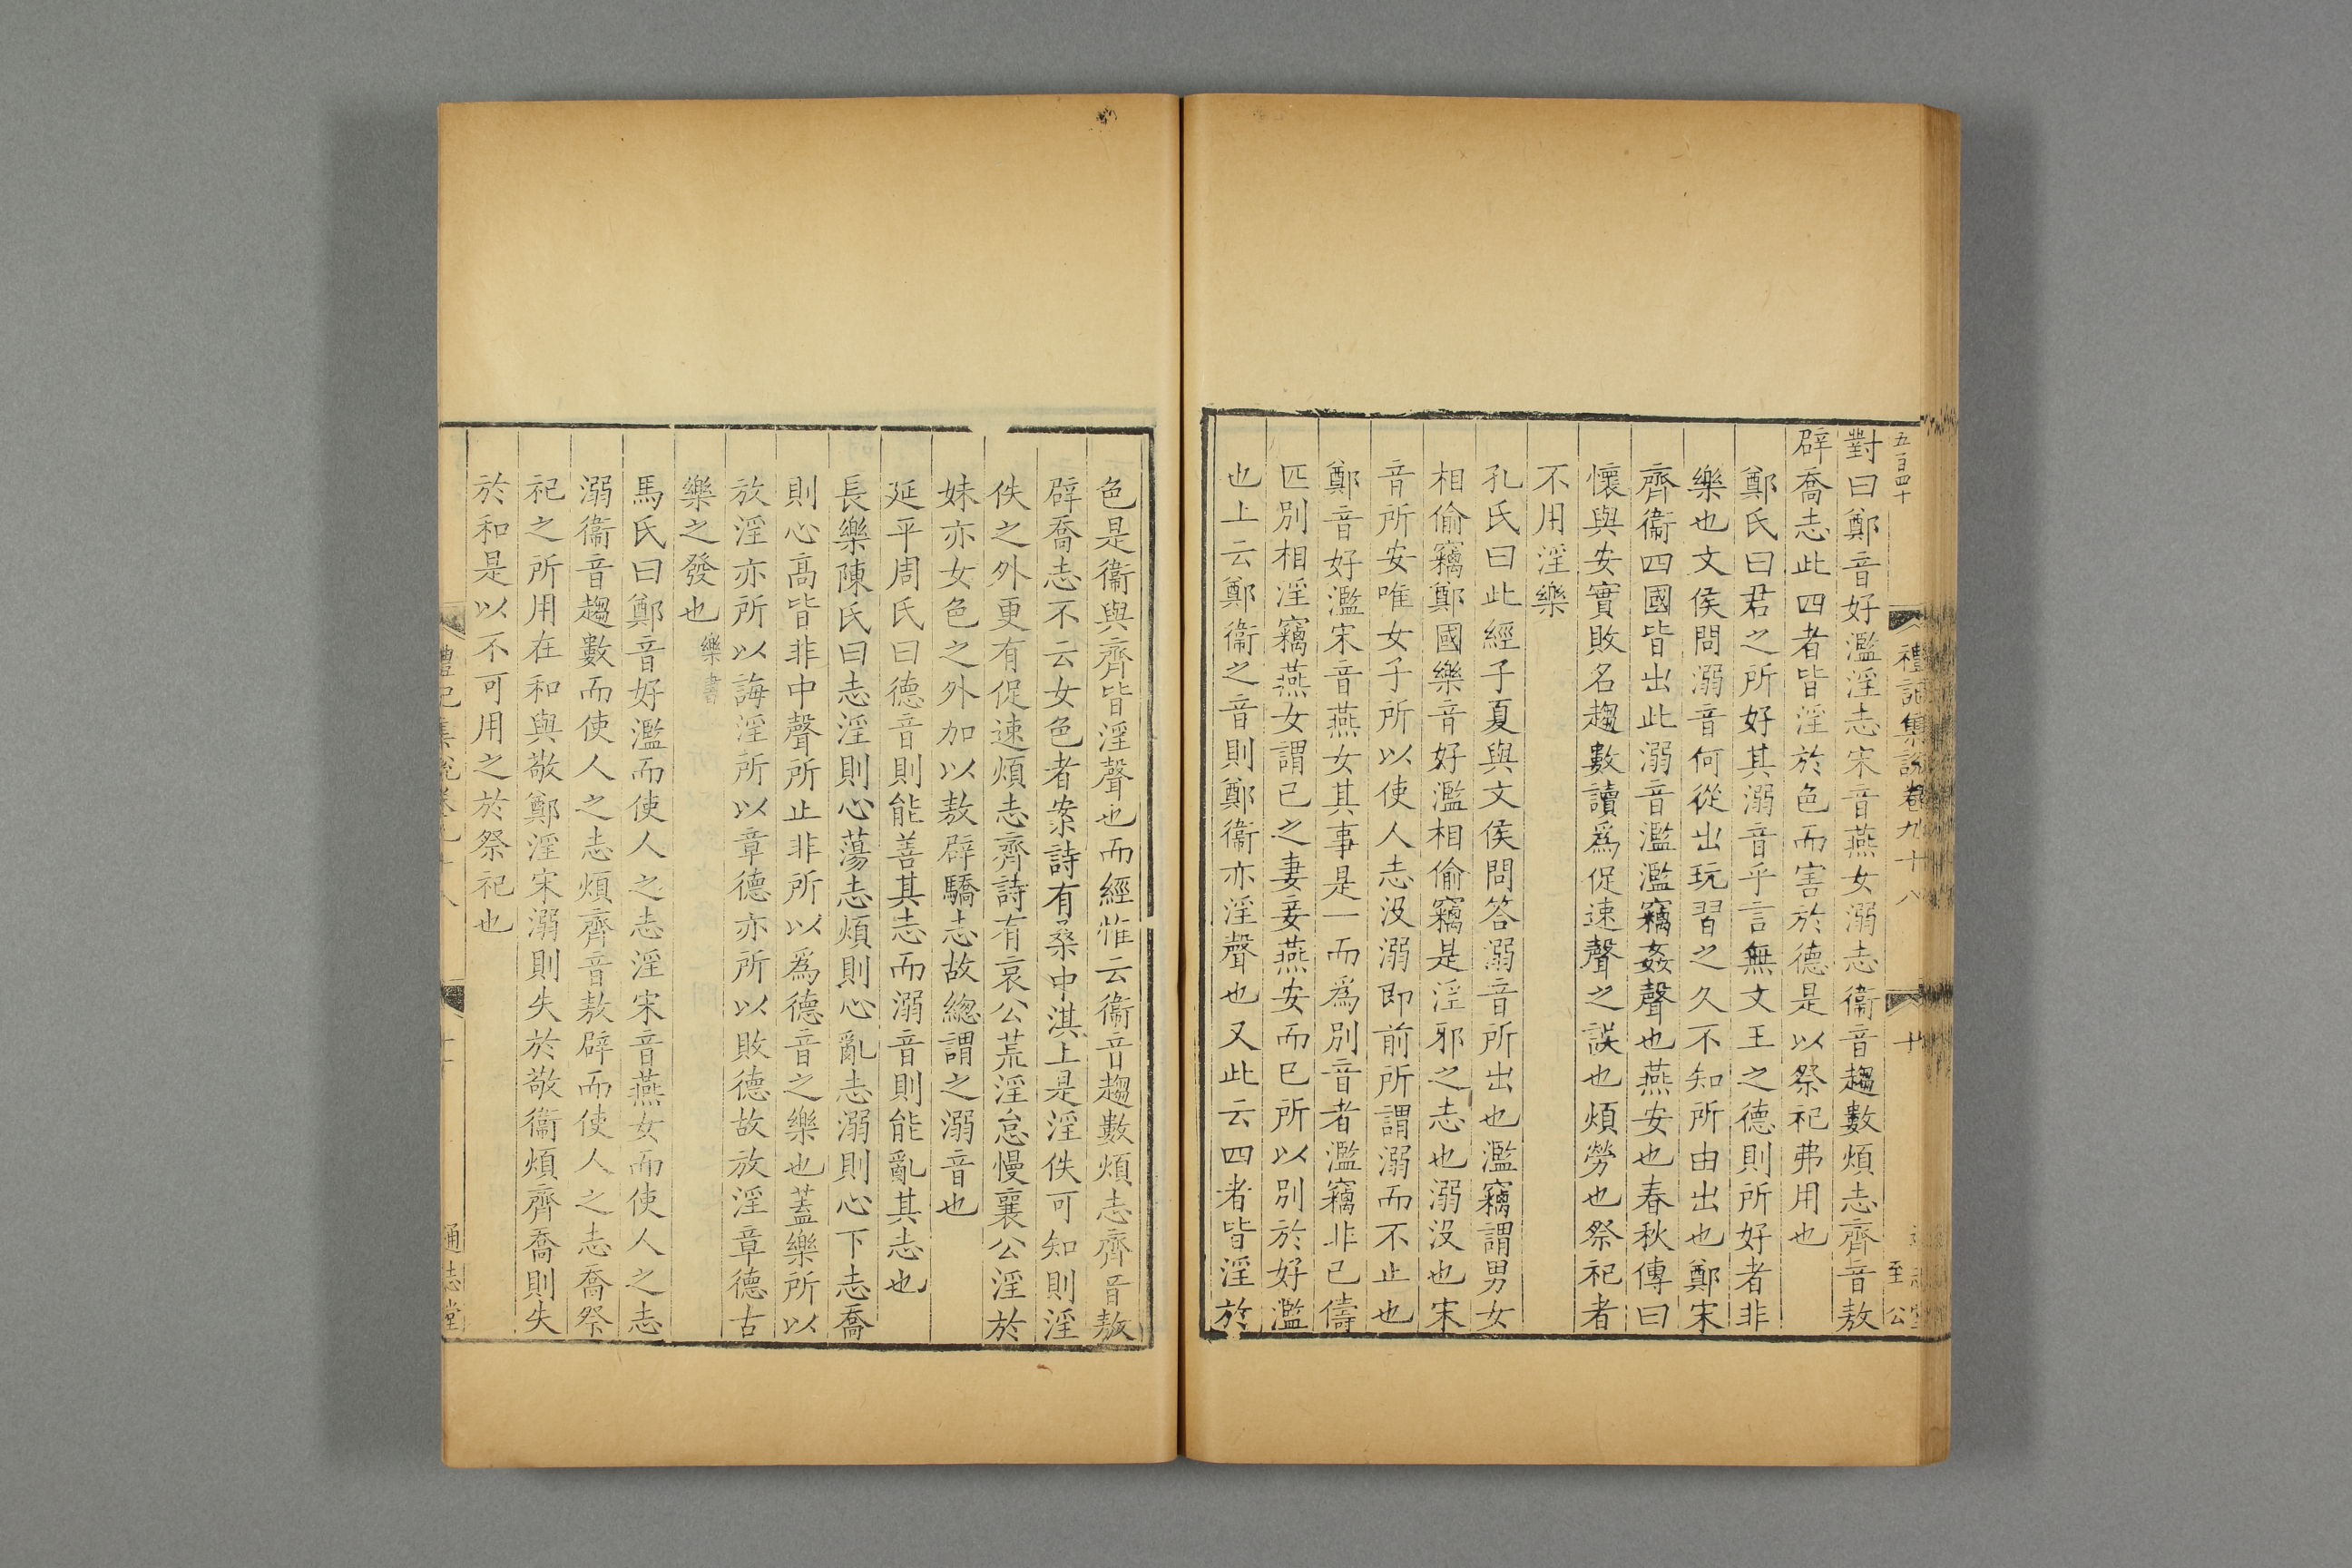 五百四十
禮記集説卷九十八
十
至公
對曰鄭音好濫淫志宋音燕女溺志衞音趨數煩志齊音敖
辟喬志此四者皆淫於色而害於德是以祭祀弗用也
鄭氏曰君之所好其溺音乎言無文王之德則所好者非
樂也文侯問溺音何從出玩習之久不知所由出也鄭宋
齊衞四國皆出此溺音濫濫竊姦聲也燕安也春秋傳曰
懷與安實敗名趨數讀爲促速聲之誤也煩勞也祭祀者
不用淫樂
孔氏曰此經子夏與文侯問答溺音所出也濫竊謂男女
相偷竊鄭國樂音好濫相偷竊是淫邪之志也溺没也宋
音所安唯女子所以使人志没溺即前所謂溺而不止也
鄭音好濫宋音燕女其事是一而爲別音者濫竊非己儔
匹別相淫竊燕女謂己之妻妾燕安而已所以別於好濫
也上云鄭衞之音則鄭衞亦淫聲也又此云四者皆淫於
色是衞與齊皆淫聲也而經惟云衞音趨數煩志齊音敖
辟喬志不云女色者案詩有桑中淇上是淫佚可知則淫
佚之外更有促速煩志齊詩有哀公荒淫怠慢襄公淫於
妹亦女色之外加以敖辟驕志故緫謂之溺音也
延平周氏曰德音則能善其志而溺音則能亂其志也
長樂陳氏曰志淫則心蕩志煩則心亂志溺則心下志喬
則心髙皆非中聲所止非所以爲德音之樂也蓋樂所以
放淫亦所以誨淫所以章德亦所以敗德故放淫章德古
樂之發也樂書
馬氏曰鄭音好濫而使人之志淫宋音燕女而使人之志
溺衞音趨數而使人之志煩齊音敖辟而使人之志喬祭
祀之所用在和與敬鄭淫宋溺則失於敬衞煩齊喬則失
於和是以不可用之於祭祀也
通志堂